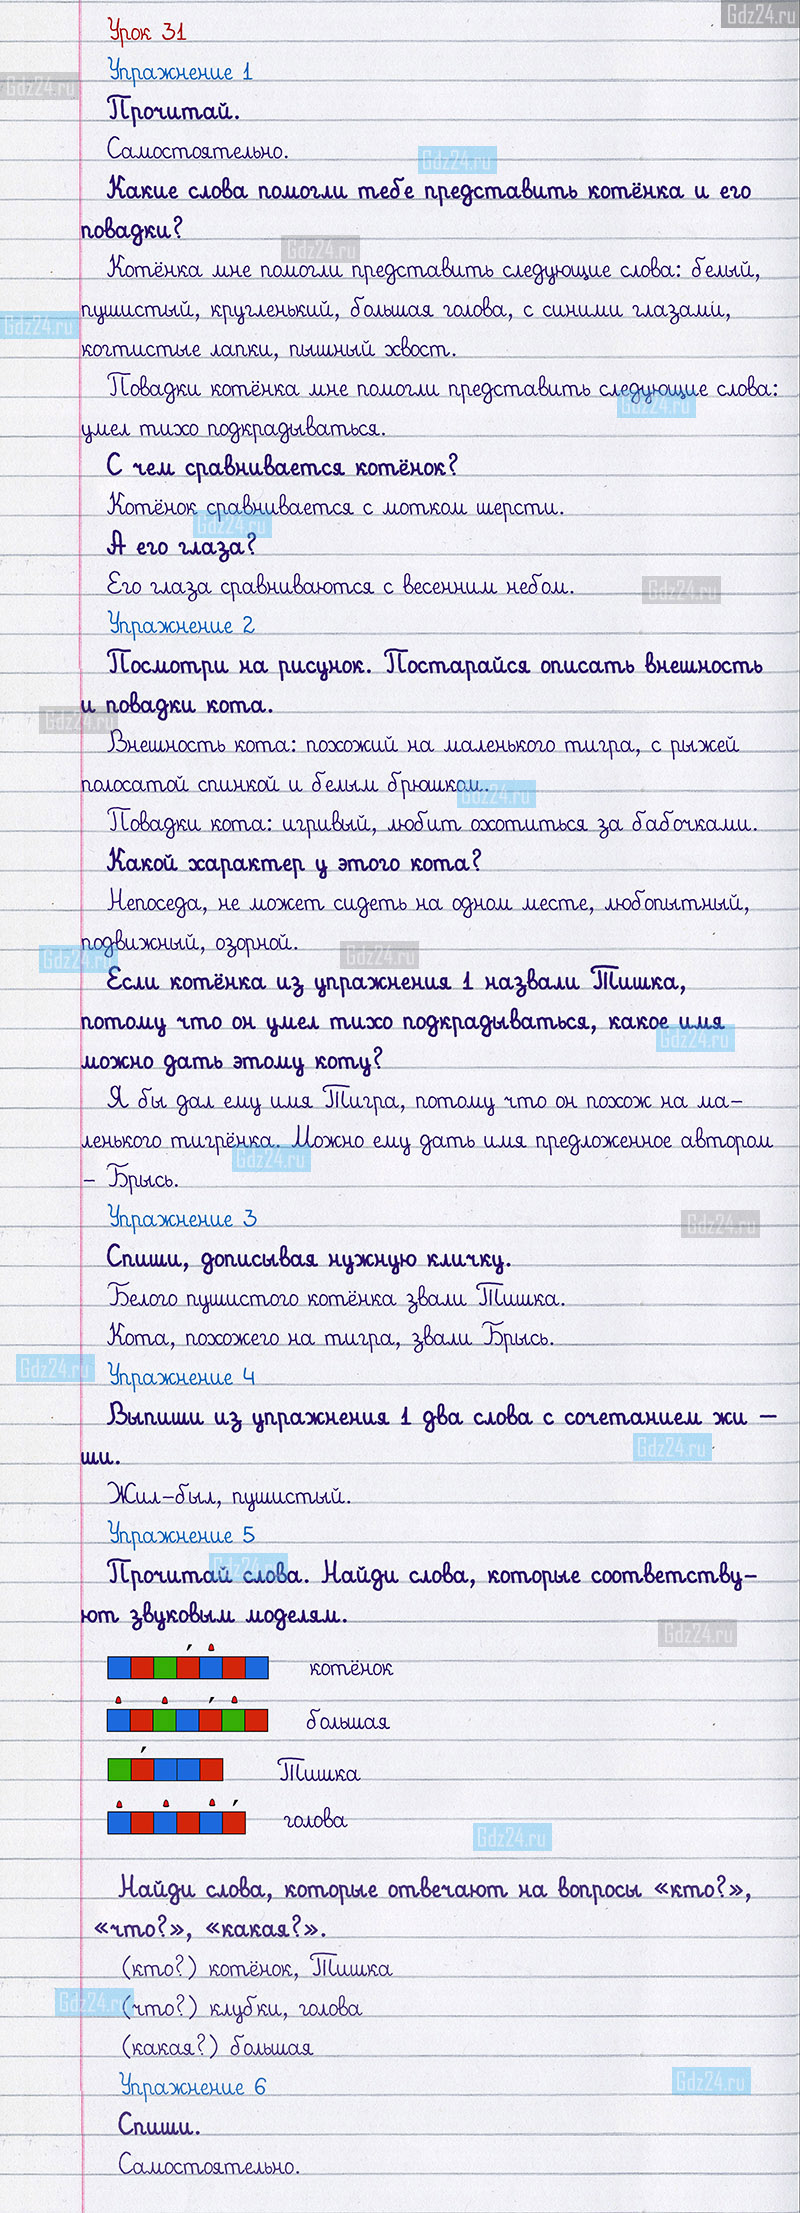 Gdz24.ru
Урок 31
Упражнение 1
Gdz24.ru
Прочитай.
Самостоятельно.
Gdz24.ru
Какие слова помогли тебе представить котёнка и его
повадки?
Gdz24.ru
Котёнка мне помогли представить следующие слова: белый,
пушистый, кругленький, большая голова, с синими глазами,
Gdz24.ru
когтистые лапки, пышный хвост.
Повадки котёнка мне помогли представить следующие слова:
Gdz24.ru
умел тихо подкрадываться.
С чем сравнивается котёнок?
Котёнок сравнивается с мотком шерсти.
Gdz24.ru
А его глаза?
Его глаза сравниваются с весенним небом.
Gdz24.ru
Упражнение 2
Посмотри на рисунок. Постарайся описать внешность
и повадки кота.
Gdz24.ru
Внешность кота: похожий на маленького тигра, с рыжей
полосатой спинкой и белым брюшком.
Gdz24.ru
Повадки кота: игривый, любит охотиться за бабочками.
Какой характер у этого кота?
Непоседа, не может сидеть на одном месте, любопытный,
подвижный, озорной.
Gdz24.ru
Gdz24.ru
Если котёнка из упражнения 1 назвали Тишка,
потому что он умел тихо подкрадываться, какое имя
Gdz24.ru
можно дать этому коту?
Я бы дал ему имя Тигра, потому что он похож на ма-
ленького тигрёнка. Можно ему дать имя предложенное автором
Gdz24.ru
– Брысь.
Упражнение 3
Gdz24.ru
Спиши, дописывая нужную кличку.
Белого пушистого котёнка звали Тишка.
Кота, похожего на тигра, звали Брысь.
Gdz24.ru
Упражнение 4
Выпиши из упражнения 1 два слова с сочетанием жи –
ши.
Gdz24.ru
Жил-был, пушистый.
Упражнение 5
Gdz24.ru
Прочитай слова. Найди слова, которые соответству-
ют звуковым моделям.
Gdz24.ru
котёнок
большая
Тишка
голова
Gdz24.ru
Найди слова, которые отвечают на вопросы «кто?»,
«что?», «какая?».
(кто?) котёнок, Тишка
Gdz24.ru
(что?) клубки, голова
(какая?) большая
Упражнение 6
Gdz24.ru
Спиши.
Самостоятельно.